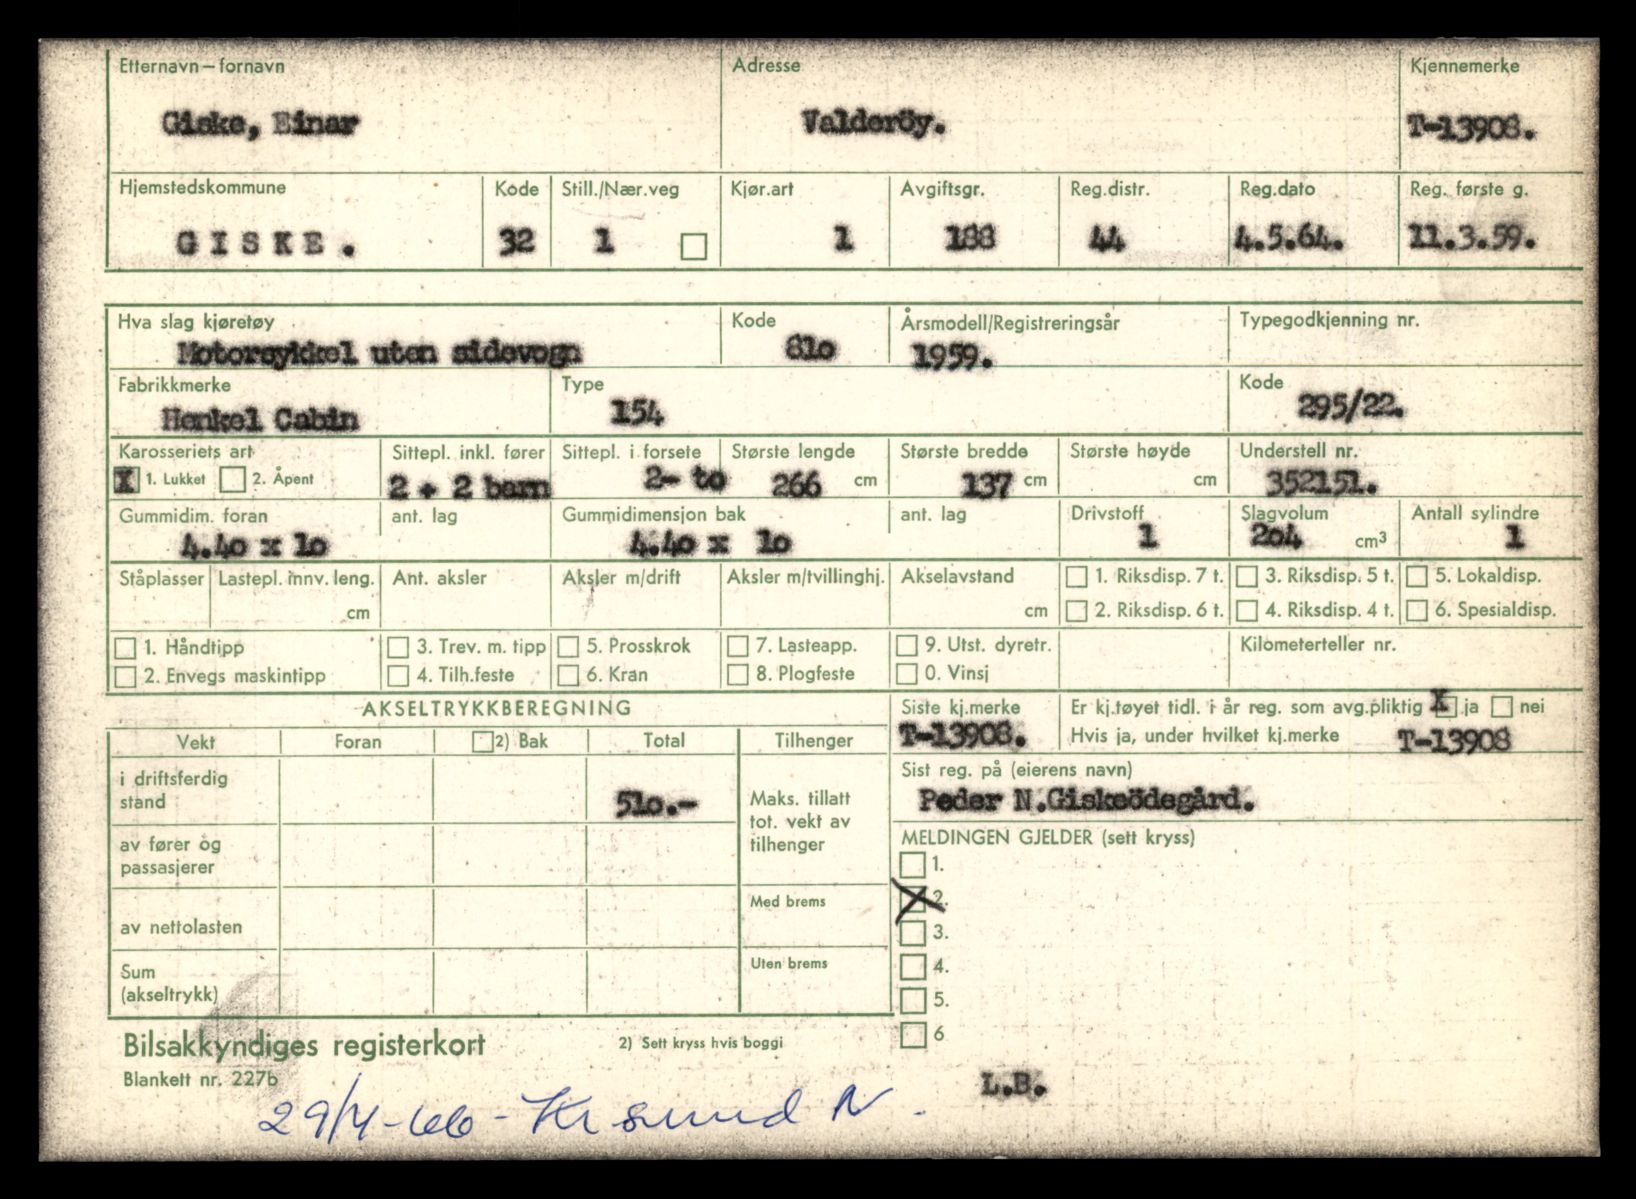 Etternavn – fornavn Adresse Kjennemerke
Giske, Einar Valderöy. T-13908.
Hjemstedskommune Kode Still./Nær.veg Kjør.art Avgiftsgr. Reg.distr. Reg.dato Reg. første g.
GISKE. 32 1 1 188 44 4.5.64. 11.3.59.
Hva slag kjøretøy Kode Årsmodell/Registreringsår Typegodkjenning nr.
Motorsykkel uten sidevogn 81o 1959.
Fabrikkmerke Type Kode
Henkel Cabin 154 295/22.
Karosseriets art Sittepl. inkl. fører Sittepl. i forsete Største lengde Største bredde Største høyde Understell nr.
X 1. Lukket 2. Åpent 2 + 2 barn 2- to 266 cm 137 cm cm 352151.
Gummidim. foran ant. lag Gummidimensjon bak ant. lag Drivstoff Slagvolum Antall sylindre
4.4o x 1o 4.4o x 1o 1 2o4 cm³ 1
Ståplasser Lastepl. innv. leng. Ant. aksler Aksler m/drift Aksler m/tvillinghj. Akselavstand 1. Riksdisp. 7 t. 3. Riksdisp. 5 t. 5. Lokaldisp.
cm cm 2. Riksdisp. 6 t. 4. Riksdisp. 4 t. 6. Spesialdisp.
1. Håndtipp 3. Trev. m. tipp 5. Prosskrok 7. Lasteapp. 9. Utst. dyretr. Kilometerteller nr.
2. Envegs maskintipp 4. Tilh.feste 6. Kran 8. Plogfeste 0. Vinsj
AKSELTRYKKBEREGNING Siste kj.merke Er kj.tøyet tidl. i år reg. som avg.pliktig X ja nei
T-13908. Hvis ja, under hvilket kj.merke T-13908
Vekt Foran 2) Bak Total Tilhenger
Sist reg. på (eierens navn)
i driftsferdig
stand 51o.- Maks. tillatt Peder N.Giskeödegård.
tot. vekt av
av fører og tilhenger MELDINGEN GJELDER (sett kryss)
passasjerer 1.
Med brems X 2.
av nettolasten 3.
Sum Uten brems 4.
(akseltrykk) 5.
6
Bilsakkyndiges registerkort 2) Sett kryss hvis boggi
Blankett nr. 227b L.B.
29/4-66 - Kr sund N.